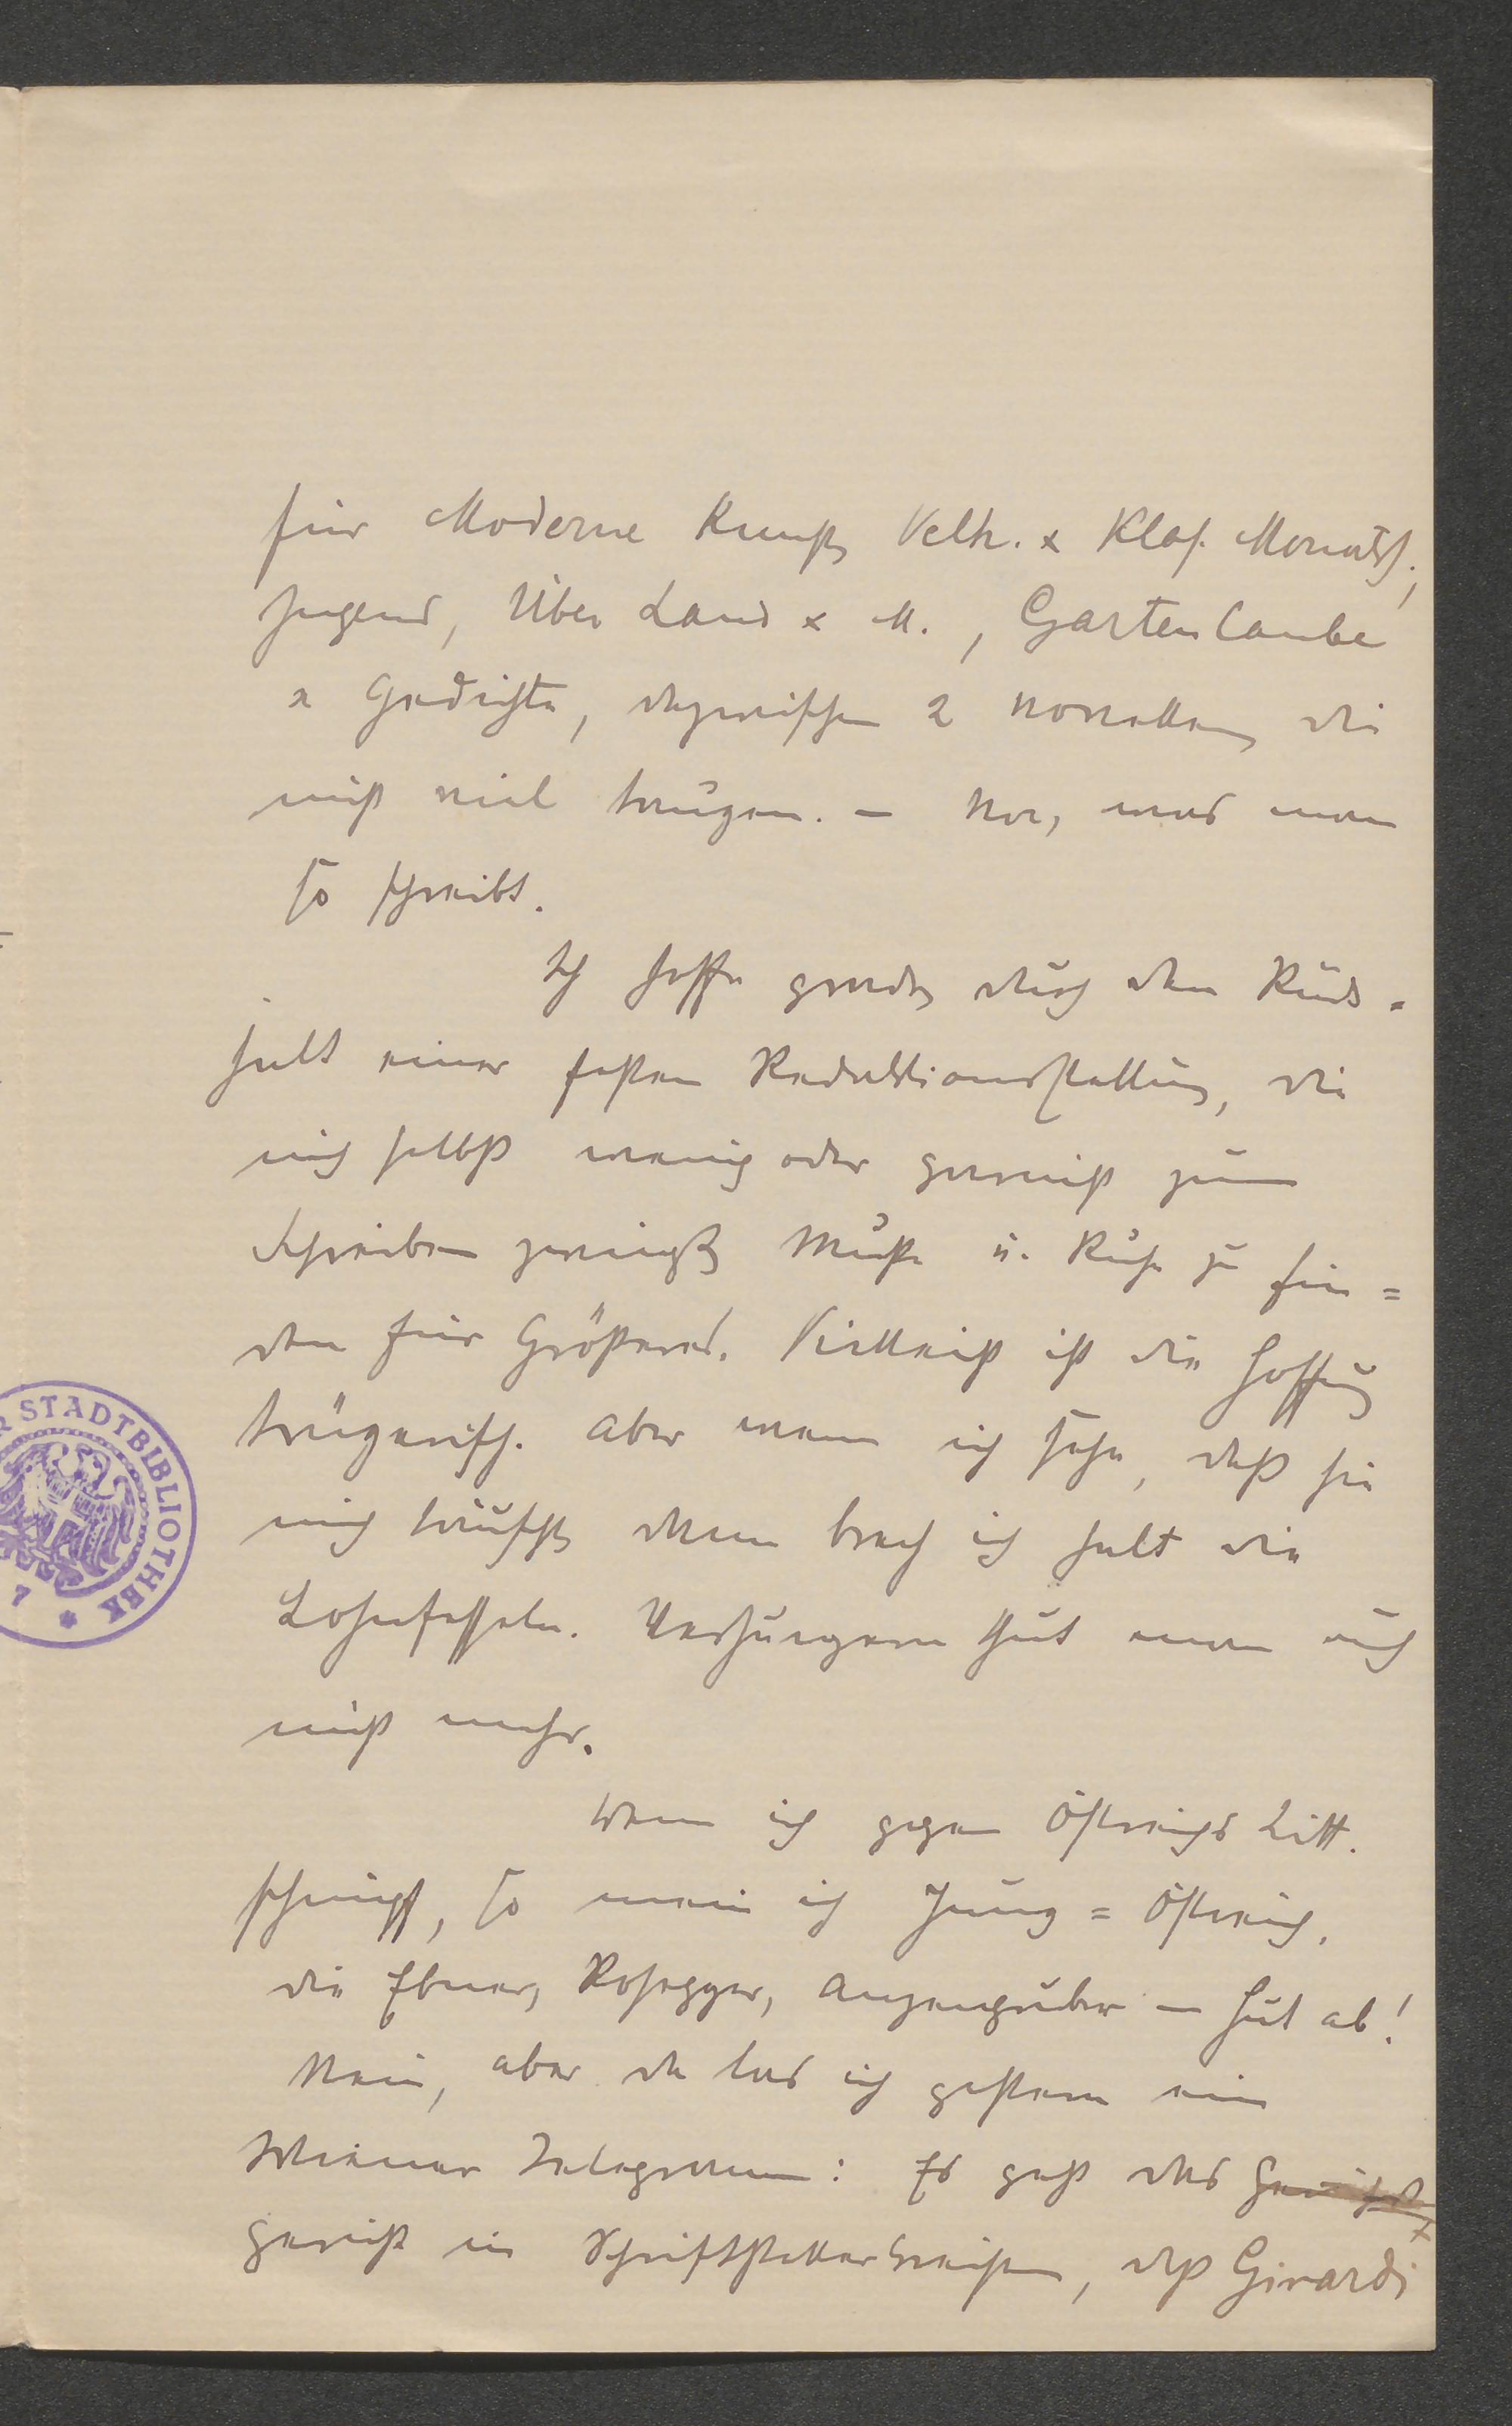 für Moderne Kunst, Velh. & Klas. Monatsh.,
Jugend, Über Land & M., Gartenlaube
x Gedichte, dazwischen 2 Novellen, die
nicht viel taugen. – Nur, was man
so schreibt.
Ich hoffe grade, durch den Rück-
halt einer festen Redaktionsstellung, die
mich selbst wenig oder garnicht zum
Schreiben zwingt, Muße u. Ruhe zu fin=
den für Größeres. Vielleicht ist die Hoffnung
trügerisch. Aber wenn ich sehe, daß sie
mich täuscht, dann brech ich halt die
Lohnfesseln. Verhungern thut man auch
nicht mehr.
Wenn ich gegen Östreichs Litt.
schimpf, so mein ich Jung=Östreich.
Die Ebner, Rosegger, Anzengruber – Hut ab!
Nein, aber da las ich gestern ein
Wiener Telegramm: Es geht das Gerücht
Gerücht in Schriftstellerkreisen, daß Girardi
STADTBIBLIOTHEK
7